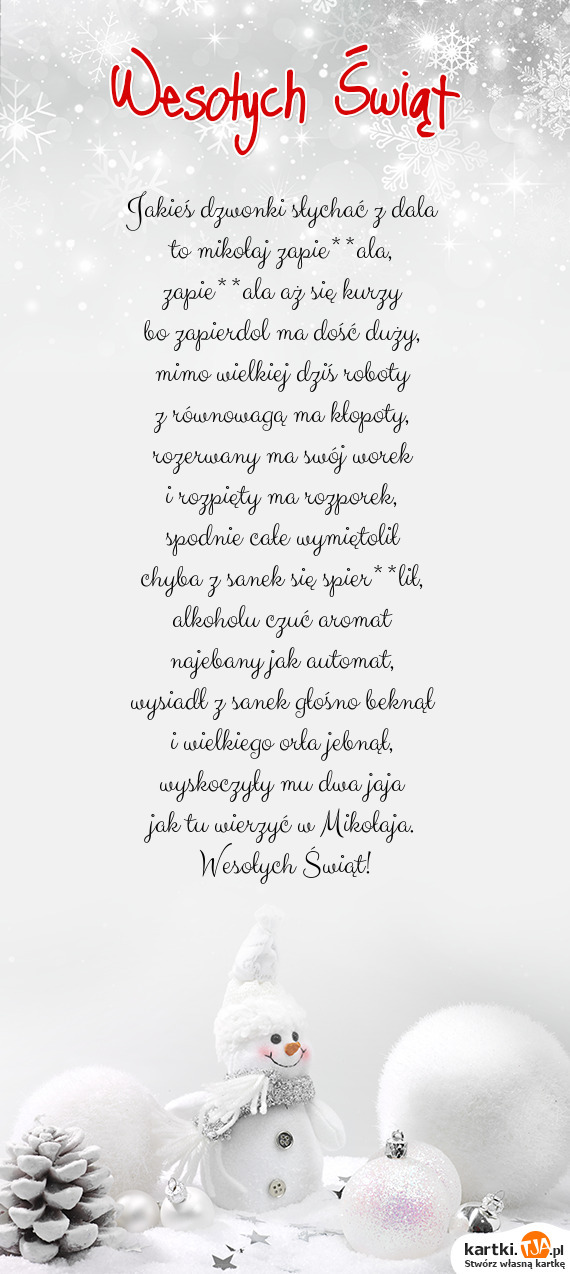 Wesołych Świąt
Jakieś dzwonki słychać z dala
to mikołaj zapie**ala,
zapie**ala aż się kurzy
bo zapierdol ma dość duży,
mimo wielkiej dziś roboty
z równowagą ma kłopoty,
rozerwany ma swój worek
i rozpięty ma rozporek,
spodnie całe wymiętolił
chyba z sanek się spier**lił,
alkoholu czuć aromat
najebany jak automat,
wysiadł z sanek głośno beknął
i wielkiego orła jebnął,
wyskoczyły mu dwa jaja
jak tu wierzyć w Mikołaja.
Wesołych Świąt!
kartki.TJA.pl
Stwórz własną kartkę